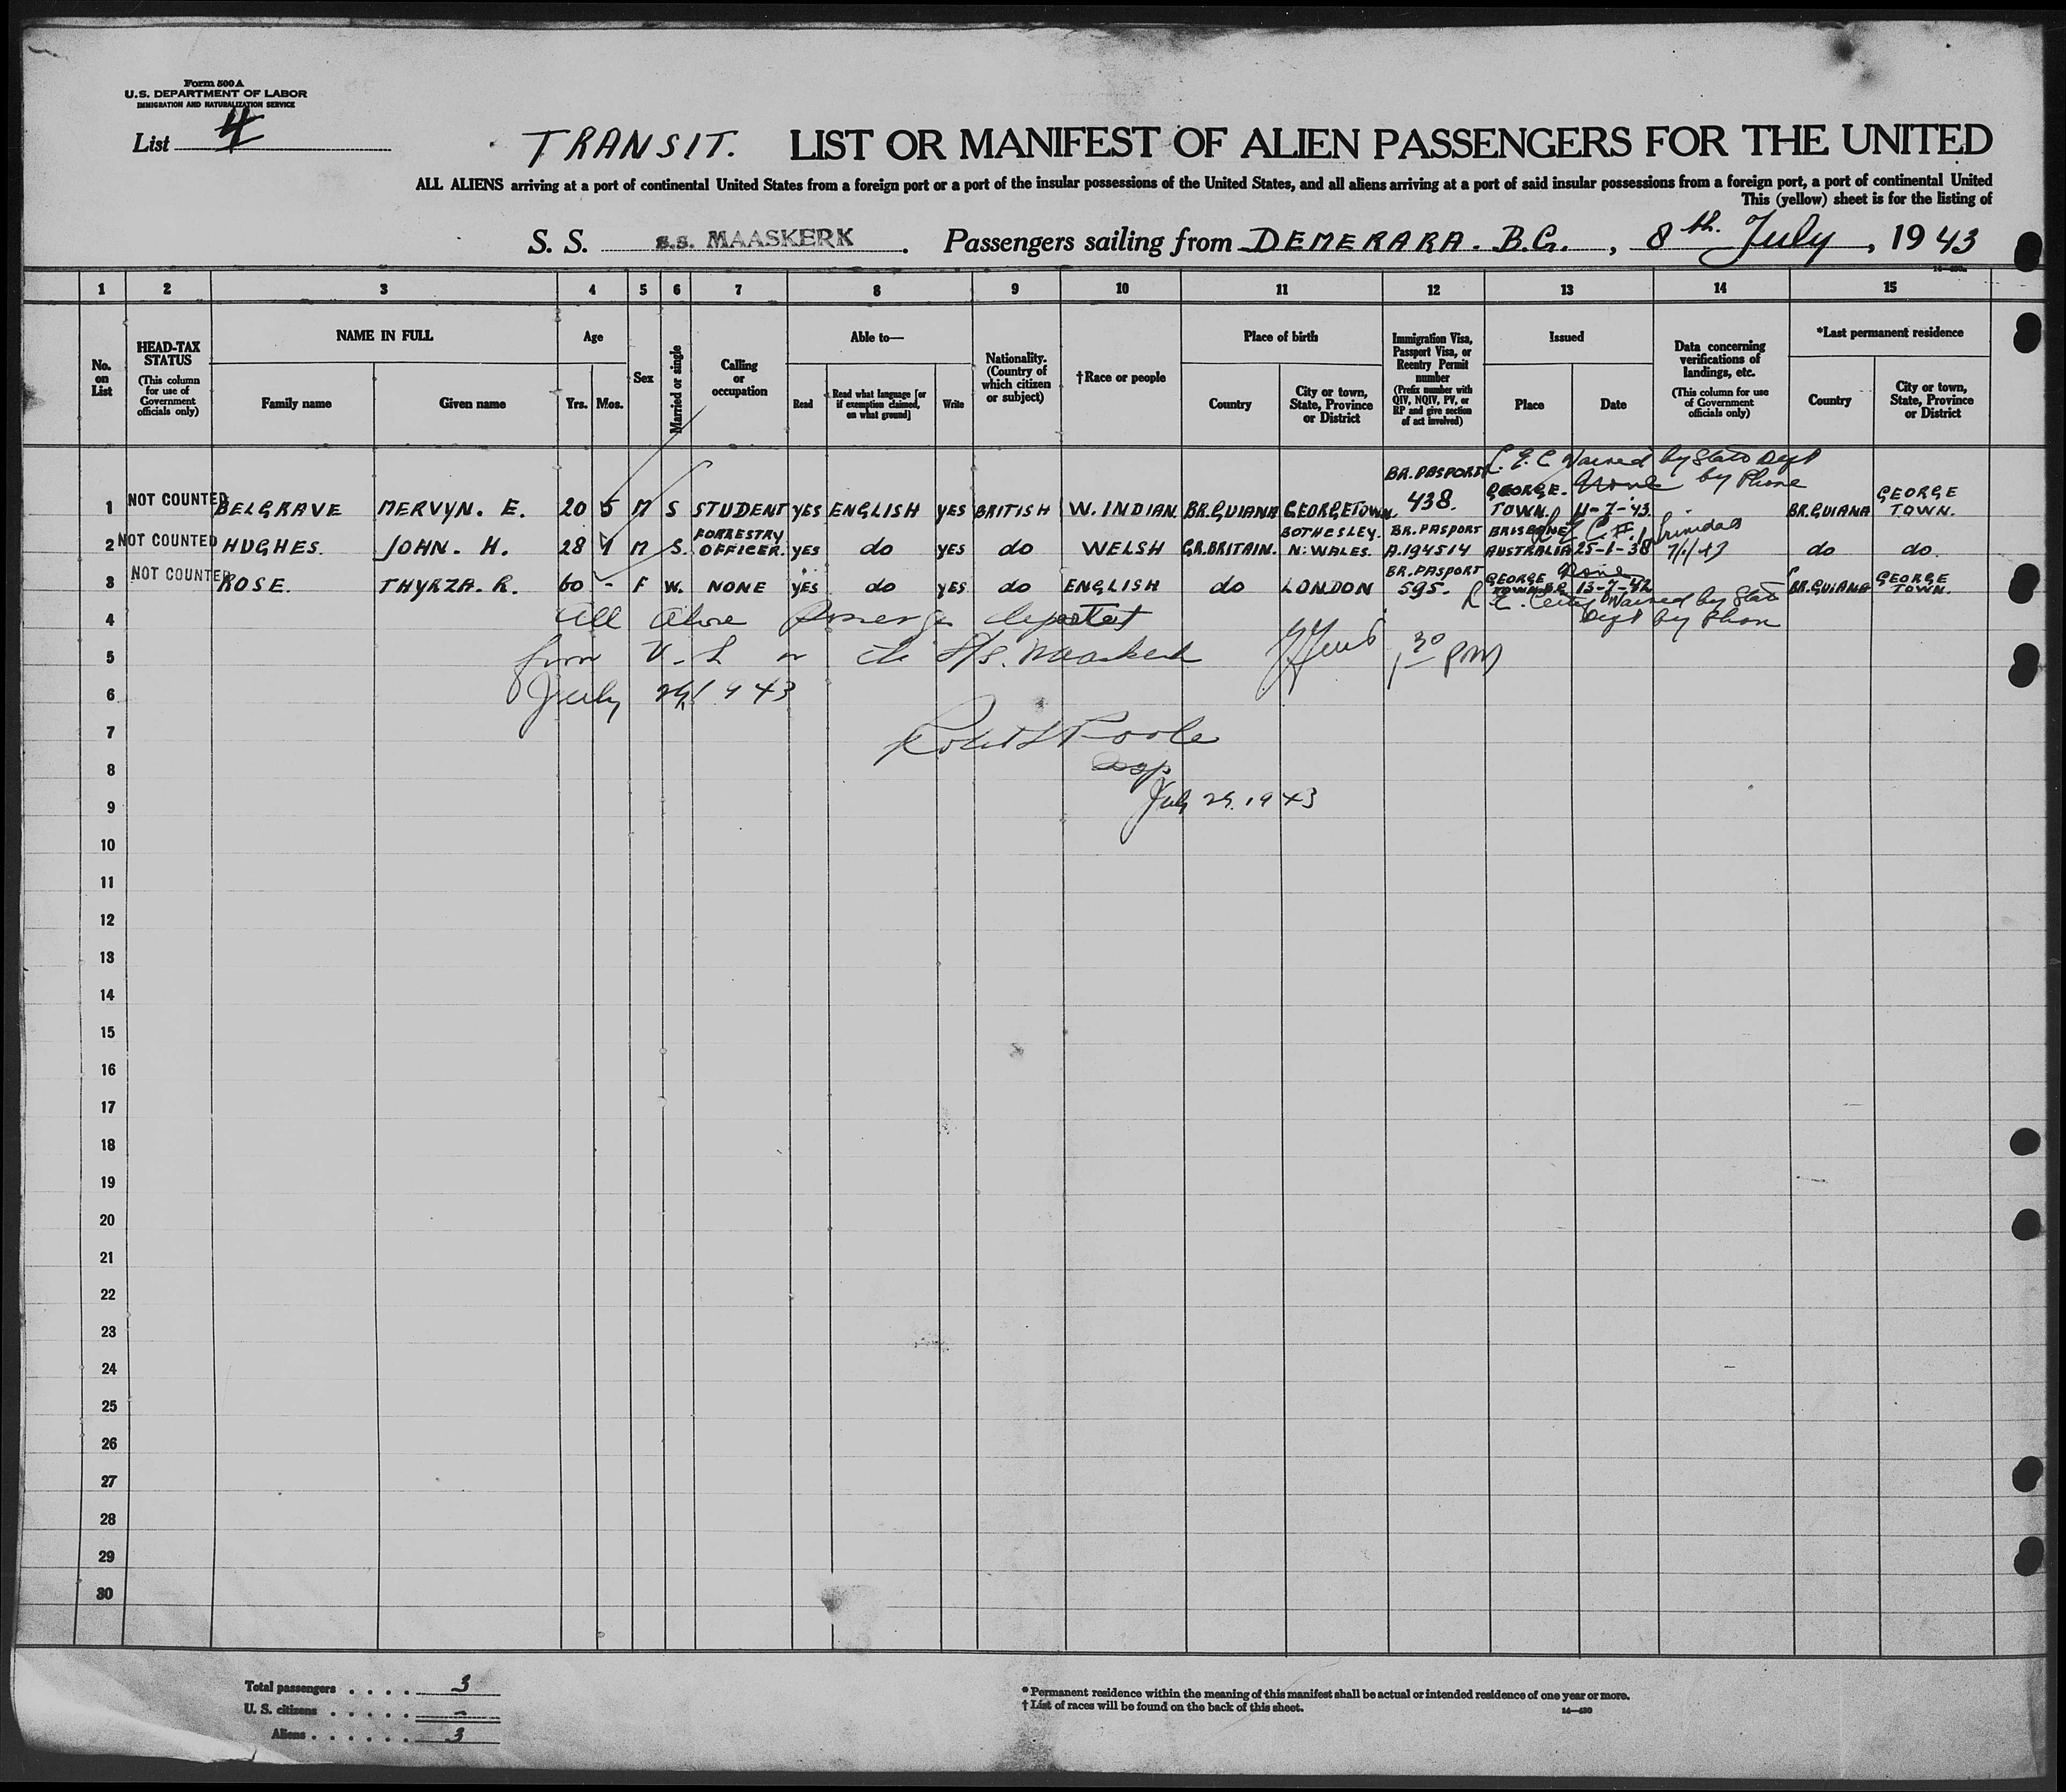 Form 500A
U.S. DEPARTMENT OF LABOR
IMMIGRATION AND NATURALIZATION SERVICE
List 4
TRANSIT. LIST OR MANIFEST OF ALIEN PASSENGERS FOR THE UNITED
ALL ALIENS arriving at a port of continental United States from a foreign port or a port of the insular possessions of the United States, and all aliens arriving at a port of said insular possessions from a foreign port, a port of continental United
This (yellow) sheet is for the listing of
S. S. s.s. MAASKERK. Passengers sailing from DEMERARA. B.G., 8th. July, 1943
1 2 3 4 5 6 7 8 9 10 11 12 13 14 15
No. on List
HEAD-TAX STATUS (This column for use of Government officials only)
NAME IN FULL
Family name Given name
Age
Yrs. Mos.
Sex
Married or single
Calling or occupation
Able to—
Read Read what language [or if exemption claimed, on what ground] Write
Nationality. (Country of which citizen or subject)
†Race or people
Place of birth
Country City or town, State, Province or District
Immigration Visa, Passport Visa, or Reentry Permit number (Prefix number with QIV, NQIV, PV, or RP and give section of act involved)
Issued
Place Date
Data concerning verifications of landings, etc. (This column for use of Government officials only)
*Last permanent residence
Country City or town, State, Province or District
L. E. C Waived by State Dept
None by Phone
1 NOT COUNTED BELGRAVE MERVYN. E. 20 5 M S STUDENT YES ENGLISH YES BRITISH W. INDIAN. BR.GUIANA GEORGETOWN. BR.PASPORT 438. GEORGE. TOWN. 11-7-43. BR.GUIANA GEORGE TOWN.
2 NOT COUNTED HUGHES. JOHN. H. 28 M S. FORRESTRY OFFICER. YES do YES do WELSH GR.BRITAIN. BOTHESLEY. N. WALES. BR. PASPORT A.194514 BRISBANE AUSTRALIA 25-1-38 Trinidad do do.
3 NOT COUNTED ROSE. THYRZA. R. 60 - F W. NONE YES do YES do ENGLISH do LONDON BR. PASPORT 595. GEORGE TOWN 13-7-42 None BR.GUIANA GEORGE TOWN.
L. E. Waived by State
Dept by Phone
4 All above
5 from U.S. on S/S. Maaskerk 1 30 PM
6 July 29 1943
7 Robert Poole
8
9 July 29. 1943
10
11
12
13
14
15
16
17
18
19
20
21
22
23
24
25
26
27
28
29
30
Total passengers . . . . 3
U. S. citizens . . . . . -
Aliens . . . . . . 3
* Permanent residence within the meaning of this manifest shall be actual or intended residence of one year or more.
† List of races will be found on the back of this sheet.
14—430